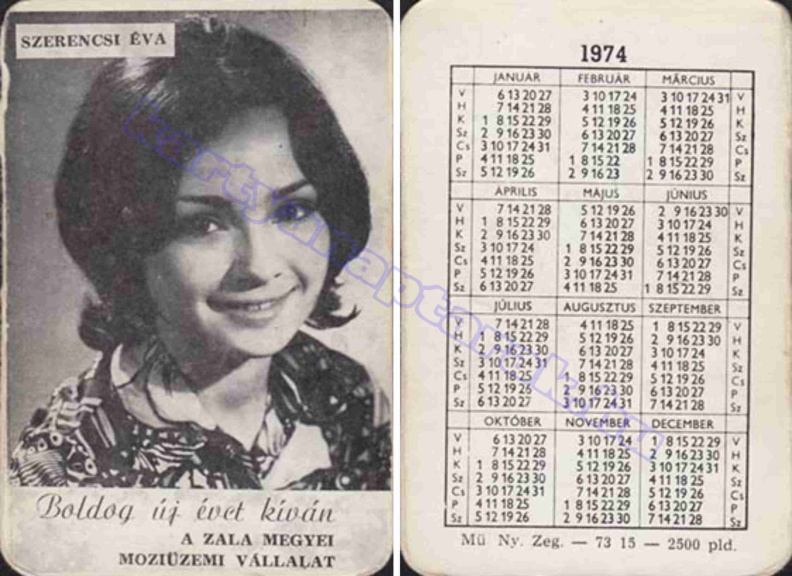 SZERENCSI ÉVA
Boldog új évet kíván
A ZALA MEGYEI
MOZIÜZEMI VÁLLALAT
1974
JANUÁR FEBRUÁR MÁRCIUS
V 6 13 20 27 3 10 17 24 3 10 17 24 31 V
H 7 14 21 28 4 11 18 25 4 11 18 25 H
K 1 8 15 22 29 5 12 19 26 5 12 19 26 K
Sz 2 9 16 23 30 6 13 20 27 6 13 20 27 Sz
Cs 3 10 17 24 31 7 14 21 28 7 14 21 28 Cs
P 4 11 18 25 1 8 15 22 1 8 15 22 29 P
Sz 5 12 19 26 2 9 16 23 2 9 16 23 30 Sz
ÁPRILIS MÁJUS JÚNIUS
V 7 14 21 28 5 12 19 26 2 9 16 23 30 V
H 1 8 15 22 29 6 13 20 27 3 10 17 24 H
K 2 9 16 23 30 7 14 21 28 4 11 18 25 K
Sz 3 10 17 24 1 8 15 22 29 5 12 19 26 Sz
Cs 4 11 18 25 2 9 16 23 30 6 13 20 27 Cs
P 5 12 19 26 3 10 17 24 31 7 14 21 28 P
Sz 6 13 20 27 4 11 18 25 1 8 15 22 29 Sz
JÚLIUS AUGUSZTUS SZEPTEMBER
V 7 14 21 28 4 11 18 25 1 8 15 22 29 V
H 1 8 15 22 29 5 12 19 26 2 9 16 23 30 H
K 2 9 16 23 30 6 13 20 27 3 10 17 24 K
Sz 3 10 17 24 31 7 14 21 28 4 11 18 25 Sz
Cs 4 11 18 25 1 8 15 22 29 5 12 19 26 Cs
P 5 12 19 26 2 9 16 23 30 6 13 20 27 P
Sz 6 13 20 27 3 10 17 24 31 7 14 21 28 Sz
OKTÓBER NOVEMBER DECEMBER
V 6 13 20 27 3 10 17 24 1 8 15 22 29 V
H 7 14 21 28 4 11 18 25 2 9 16 23 30 H
K 1 8 15 22 29 5 12 19 26 3 10 17 24 31 K
Sz 2 9 16 23 30 6 13 20 27 4 11 18 25 Sz
Cs 3 10 17 24 31 7 14 21 28 5 12 19 26 Cs
P 4 11 18 25 1 8 15 22 29 6 13 20 27 P
Sz 5 12 19 26 2 9 16 23 30 7 14 21 28 Sz
Mü Ny. Zeg. — 73 15 — 2500 pld.